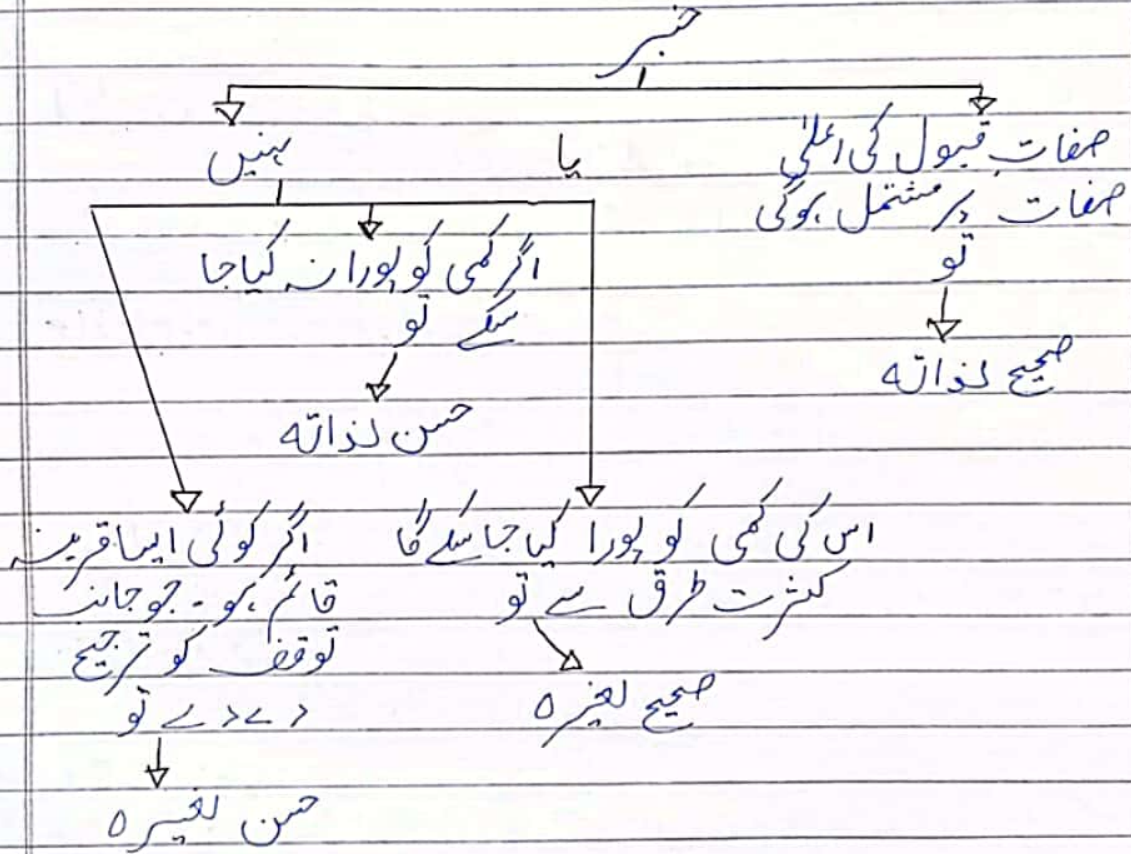 خبر
صفات قبول کی اعلیٰ
صفات پر مشتمل ہوگی
تو
صحیح لذاتہ
یا
نہیں
اگر کمی کو پورا نہ کیا جا
سکے تو
حسن لذاتہ
اس کی کمی کو پورا کیا جا سکے گا
کثرت طرق سے تو
صحیح لغیرہ
اگر کوئی ایسا قرینہ
قائم ہو۔ جو جانب
توقف کو ترجیح
دے دے تو
حسن لغیرہ